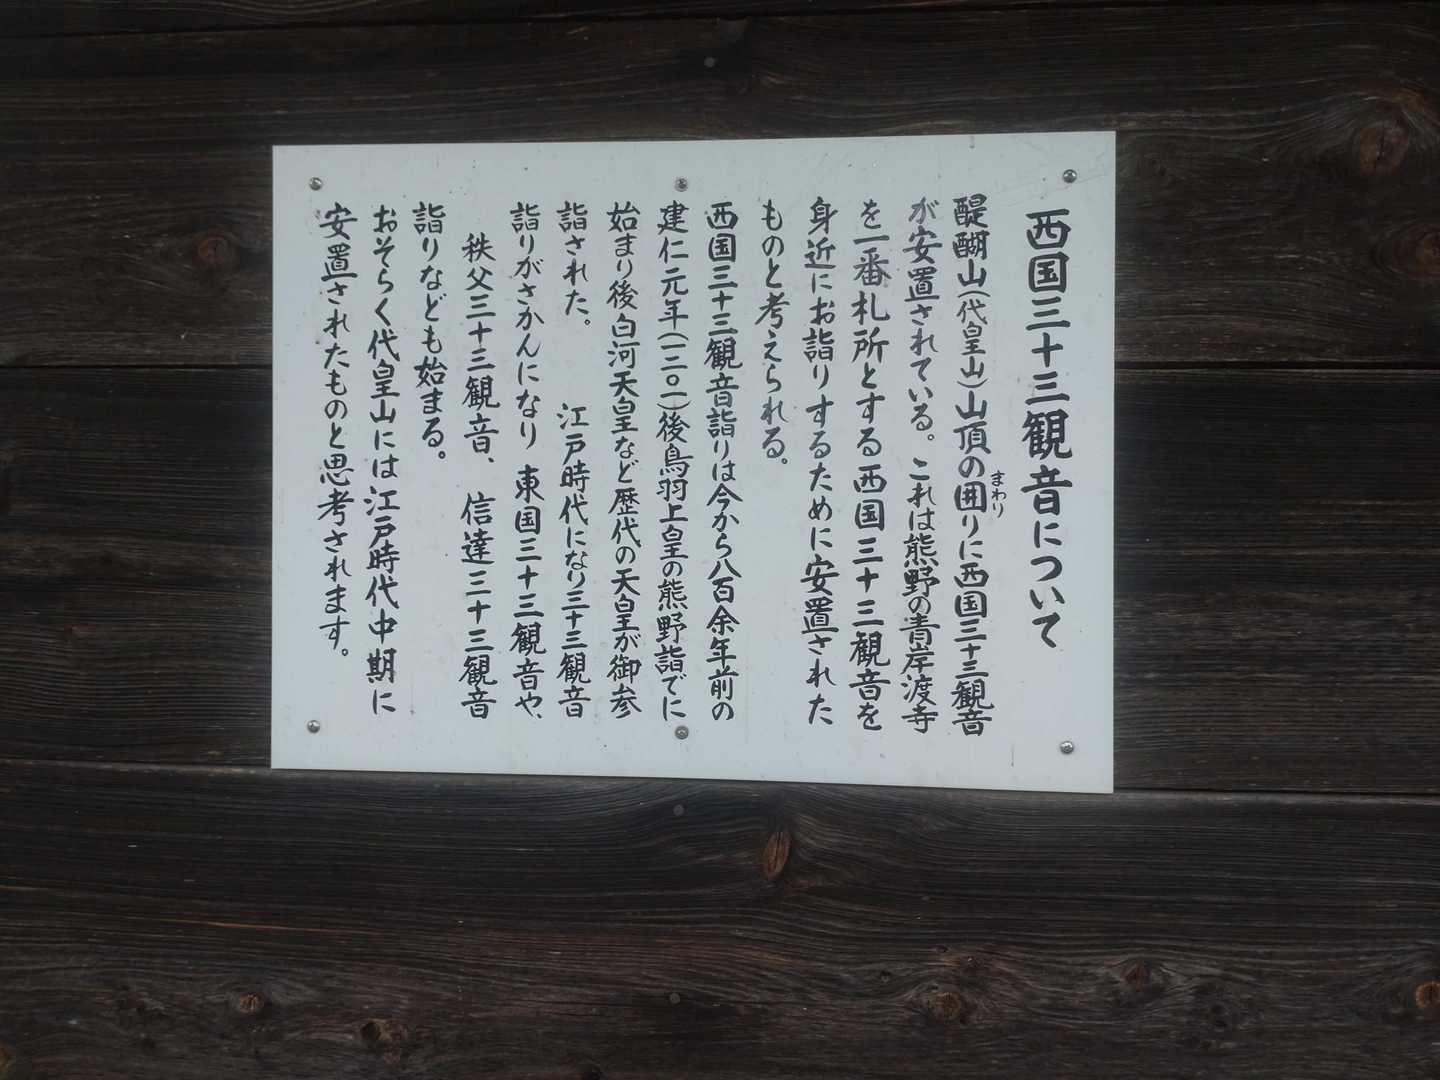 西国三十三観音について
醍醐山(代皇山)山頂の囲りに西国三十三観音
まわり
が安置されている。これは熊野の青岸渡寺
を一番札所とする西国三十三観音を
身近にお詣りするために安置された
ものと考えられる。
西国三十三観音詣りは今から八百余年前の
建仁元年(一二〇一)後鳥羽上皇の熊野詣でに
始まり後白河天皇など歴代の天皇が御参
詣された。 江戸時代になり三十三観音
詣りがさかんになり 東国三十三観音や、
秩父三十三観音、 信達三十三観音
詣りなども始まる。
おそらく代皇山には江戸時代中期に
安置されたものと思考されます。